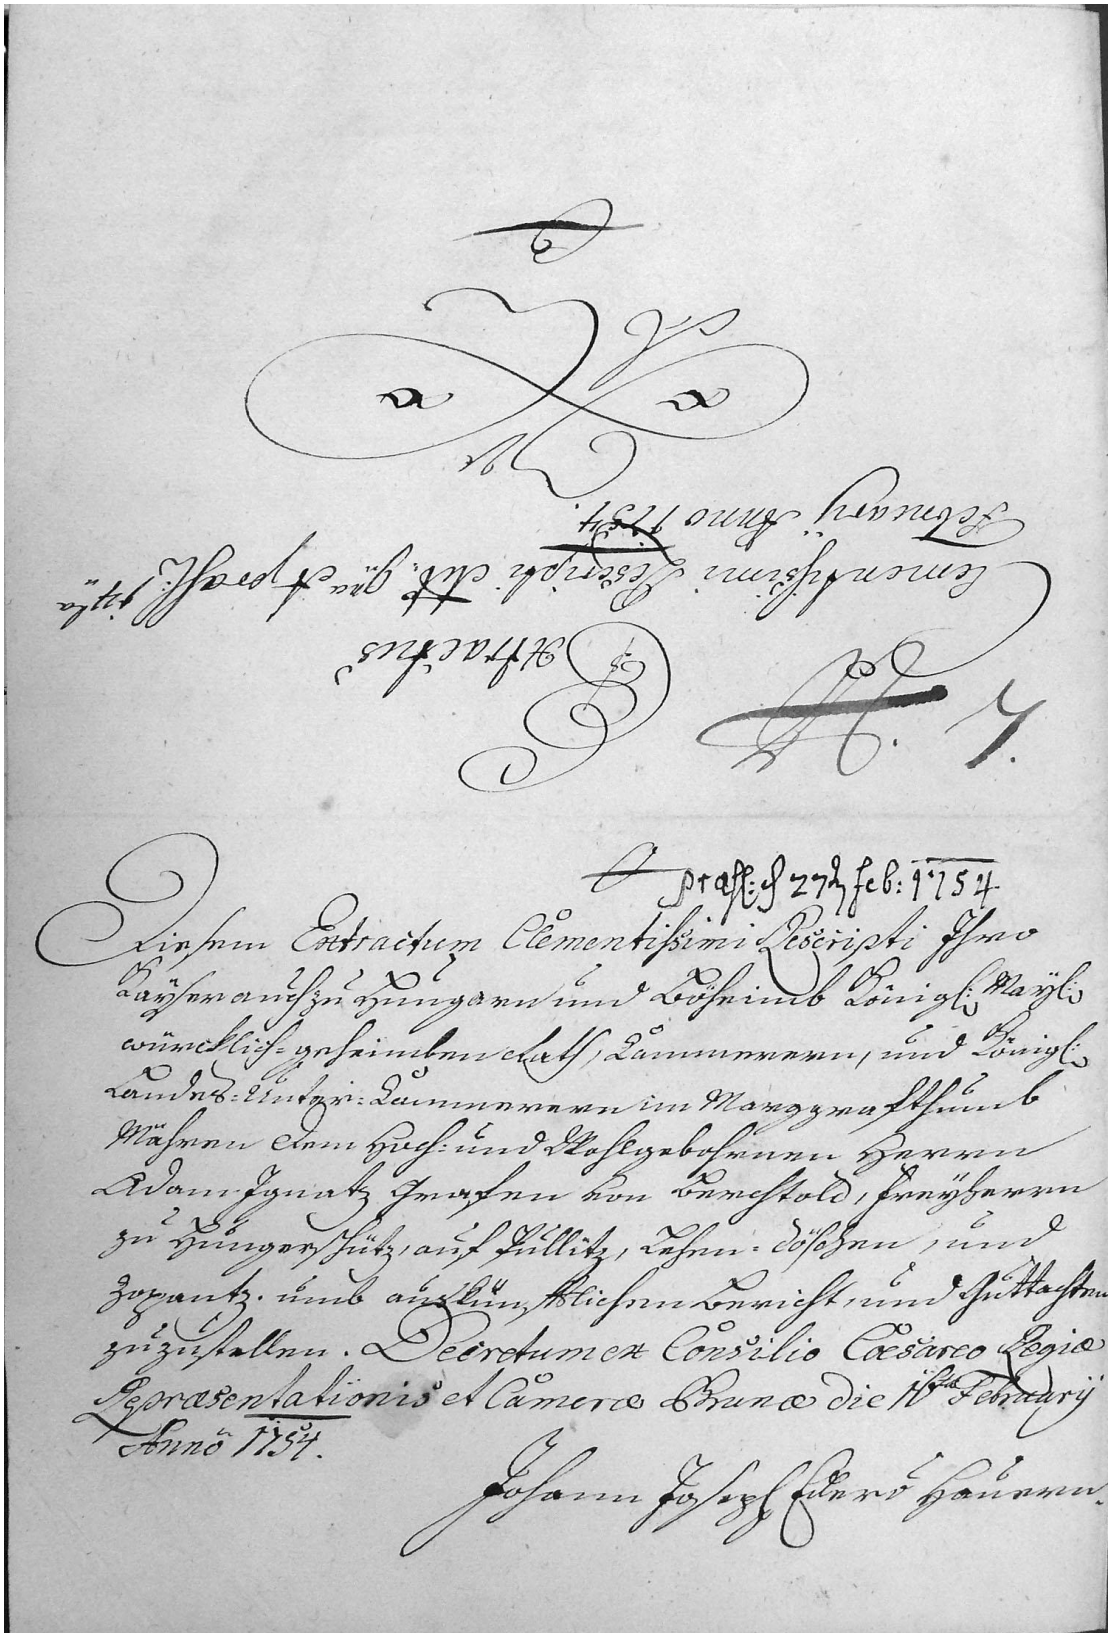 Extractus
Clementissimi Rescripti ddto: et præs:
February Anno 1754
7.
præss: d 27t feb: 1754
Diesem Extractum Clementissimi Rescripti Ihro
Kayser auch zu Hungarn und Böheimb Königl: Mayt:
würcklich=geheimben Rath, Cammerern, und Königl:
Landes=Unter=Cammerern im Marggrafthumb
Mähren dem Hoch= und Wohlgebohrnen Herrn
Adam Ignatz Grafen von Berchtold, Freyherrn
zu Hungerschütz, auf Pullitz, Lehen=Döschen, und
Zoppantz. umb auskünfftlichen Bericht, und Guttachten
zuzustellen. Decretum ex Consilio Cæsareo Regiæ
Repræsentationis et Cameræ Brunæ die February
Anno 1754.
Johann Joseph Hauern.